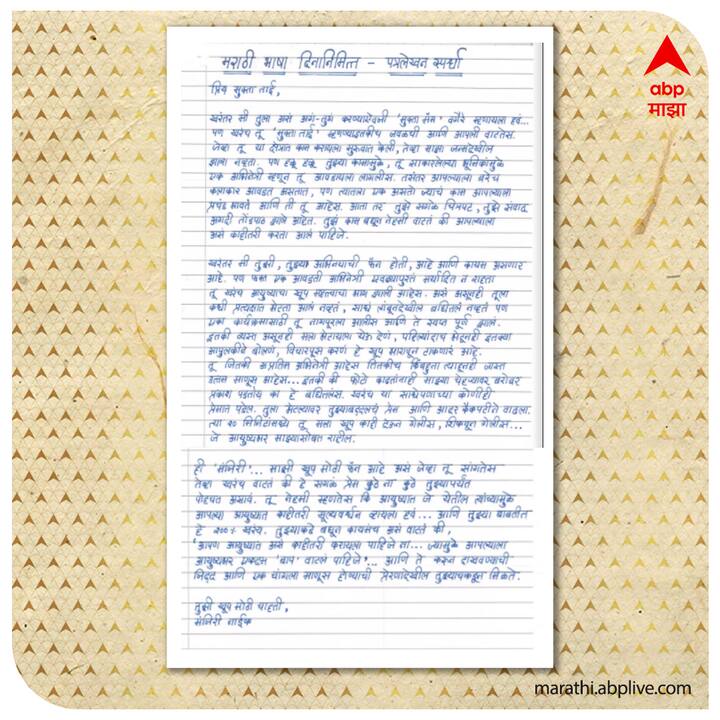 मराठी भाषा दिनानिमित्त - पत्रलेखन स्पर्धा
abp
माझा
प्रिय मुक्ता ताई,
खरंतर मी तुला असं अगं-तुगं करण्याऐवजी 'मुक्ता मॅम' वगैरे म्हणायला हवं...
पण खरंच तू 'मुक्ता ताई' म्हणण्याइतकीच जवळची आणि आपली वाटतेस.
जेव्हा तू या क्षेत्रात काम करायला सुरुवात केली, तेव्हा माझा जन्मदेखील
झाला नव्हता. पण हळू हळू तुझ्या कामामुळे, तू साकारलेल्या भूमिकांमुळे
एक अभिनेत्री म्हणून तू आवडायला लागलीस. तसंतर आपल्याला बरेच
कलाकार आवडत असतात, पण त्यातला एक असतो ज्याचं काम आपल्याला
प्रचंड भावतं आणि ती तू आहेस. आता तर तुझे सगळे चित्रपट, तुझे संवाद
अगदी तोंडपाठ झाले आहेत. तुझं काम बघून नेहमी वाटतं की आपल्याला
असं काहीतरी करता आलं पाहिजे.
खरंतर मी तुझी, तुझ्या अभिनयाची फॅन होती, आहे आणि कायम असणार
आहे. पण फक्त एक आवडती अभिनेत्री एवढ्यापुरतं मर्यादित न राहता
तू खरंच आयुष्याचा खूप महत्त्वाचा भाग झाली आहेस. असं असूनही तुला
कधी प्रत्यक्षात भेटता आलं नव्हतं, साधं लांबूनदेखील बघितलं नव्हतं पण
एका कार्यक्रमासाठी तू नागपूरला आलीस आणि ते स्वप्न पूर्ण झालं.
इतकी व्यस्त असूनही मला भेटायला येऊ देणं, पहिल्यांदाच भेटूनही इतक्या
आपुलकीने बोलणं, विचारपूस करणं हे खूप भारावून टाकणारं आहे.
तू जितकी अप्रतिम अभिनेत्री आहेस तितकीच किंबहुना त्याहूनही जास्त
उत्तम माणूस आहेस... इतकी की फोटो काढतांनाही माझ्या चेहऱ्यावर बरोबर
प्रकाश पडतोय का हे बघितलंस. खरंच या साधेपणाच्या कोणीही
प्रेमात पडेल. तुला भेटल्यावर तुझ्याबद्दलचं प्रेम आणि आदर कैकपटीने वाढला.
त्या २० मिनिटांमध्ये तू मला खूप काही देऊन गेलीस, शिकवून गेलीस...
जे आयुष्यभर माझ्यासोबत राहील.
ही 'मंजिरी'... माझी खूप मोठी फॅन आहे असं जेव्हा तू सांगतेस
तेव्हा खरंच वाटतं की हे सगळं प्रेम कुठे ना कुठे तुझ्यापर्यंत
पोहचत असावं. तू नेहमी म्हणतेस कि आयुष्यात जे येतील त्यांच्यामुळे
आपल्या आयुष्यात काहीतरी मूल्यवर्धन व्हायला हवं... आणि तुझ्या बाबतीत
हे २००% खरंय. तुझ्याकडे बघून कायमच असं वाटतं की,
'आपण आयुष्यात असं काहीतरी करायला पाहिजे ना... ज्यामुळे आपल्याला
आयुष्यभर एकदम 'बाप' वाटलं पाहिजे'... आणि ते करून दाखवण्याची
जिद्द आणि एक चांगला माणूस होण्याची प्रेरणादेखील तुझ्याकडून मिळते.
तुझी खूप मोठी चाहती,
मंजिरी नाईक
marathi.abplive.com